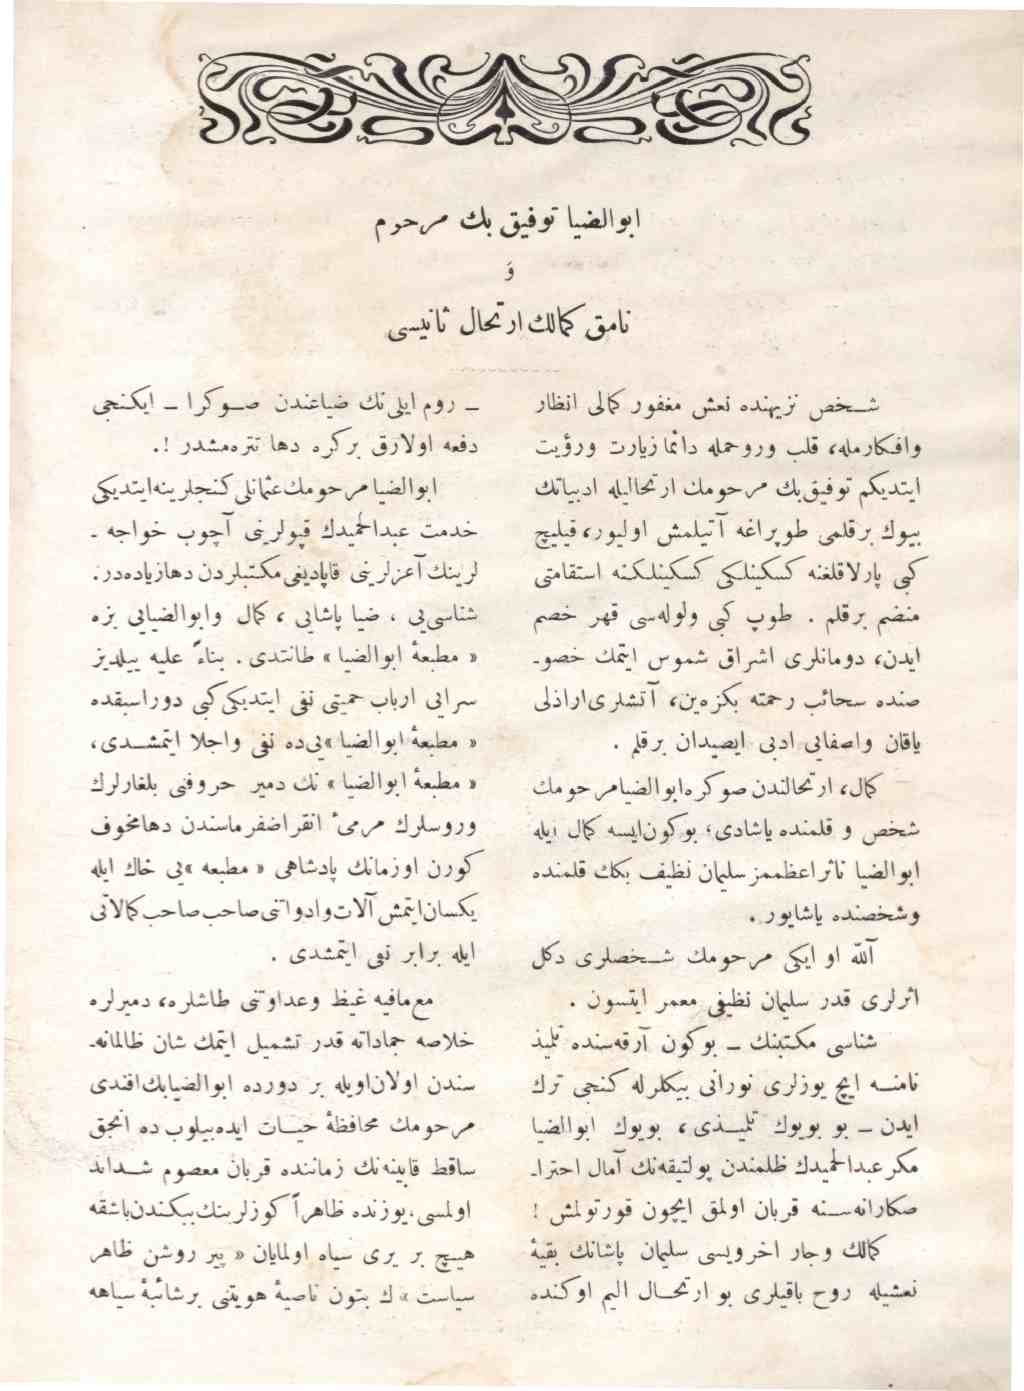 ابوالضيا توفيق بك مرحوم
وَ
نامق كمالك ارتحال ثانيسى
شـخص نزيهنده نعش مغفور كمالى انظار
وافكارمله، قلب وروحمله دائما زيارت ورؤيت
ايتديكم توفيق بك مرحومك ارتحاليله ادبياتك
بيوك برقلمى طوپراغه آتيلمش اوليور، قيليچ
كبى پارلاقلغنه كسكينلكى كسكينلكنه استقامتى
منضم برقلم . طوپ كبى ولوله‌سى قهر خصم
ايدن، دومانلرى اشراق شموس ايتمك خصو-
صنده سحائب رحمته بكزه‌ين، آتشلرى اراذلى
ياقان واصفايى ادبى ايصيدان برقلم .
كمال، ارتحالندن صوكره ابوالضيامرحومك
شخص و قلمنده ياشادى؛ بوكون ايسه كمال ايله
ابوالضيا ناثر اعظممز سليمان نظيف بكك قلمنده
وشخصنده ياشايور .
آلله او ايكى مرحومك شـخصلرى دكل
اثرلرى قدر سليمان نظيفى معمر ايتسون .
شناسى مكتبنك ــ بوكون آرقه‌سنده تلميذ
نامنـه ايچ يوزلرى نورانى بيكلرله كنجى ترك
ايدن ــ بو بويوك تلميـذى، بويوك ابوالضيا
مكر عبدالحميدك ظلمندن پولتيقه‌نك آمال احترا-
صكارانه‌سـنه قربان اولمق ايچون قورتولمش !
كمالك وجار اخرويسى سليمان پاشانك بقيۀ
نعشيله روح باقيلرى بو ارتحـال اليم اوكنده
ــ روم ايلى‌نك ضياعندن صـوكرا ــ ايكنجى
دفعه اولارق بركره دها تتره‌مشدر !.
ابوالضيا مرحومك عثمانلى كنجلرينه ايتديكى
خدمت عبدالحميدك قپولرينى آچوب خواجه -
لرينك آغزلرينى قاپاديغى مكتبلردن دها زياده‌در.
شناسى‌يى ، ضيا پاشايى ، كمال وابوالضيايى بزه
« مطبعۀ ابوالضيا » طانتدى . بناءً عليه ييلديز
سرايى ارباب حميتى نفى ايتديكى كبى دور اسبقده
« مطبعۀ ابوالضيا »يى‌ده نفى واجلا ايتمشـدى،
« مطبعۀ ابوالضيا » نك دمير حروفنى بلغارلرك
وروسلرك مرمئ انقراضفرماسندن دها مخوف
كورن اوزمانك پادشاهى « مطبعه »يى خاك ايله
يكسان ايتمش آلات وادواتنى صاحب كمالاتى
ايله برابر نفى ايتمشدى .
مع‌مافيه غيظ وعداوتنى طاشلره، دميرلره
خلاصه جماداته قدر تشميل ايتمك شان ظالمانه-
سندن اولان اويله بر دورده ابوالضيابك افندى
مرحومك محافظۀ حيـات ايده‌بيلوب ده انجق
ساقط قابينه‌نك زماننده قربان معصوم شـدائد
اولمسى، يوزنده ظاهراً كوزلرينك ببكندن باشقه
هيـچ بر يرى سياه اولمايان « پير روشن ظاهر
سياست » ك بتون ناصيۀ هويتنى برشائبۀ سياهه